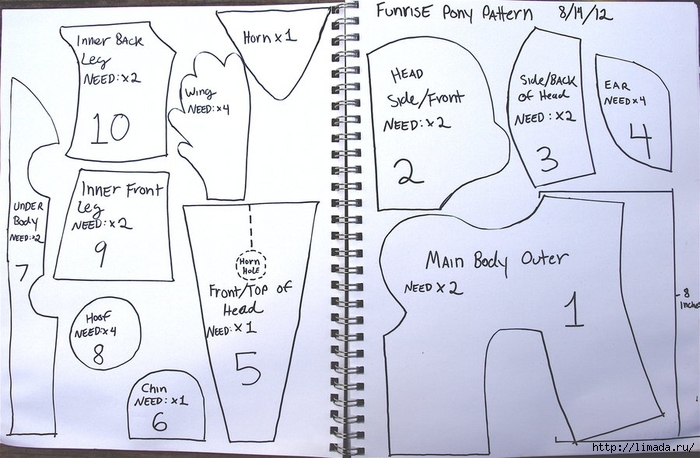 Inner Back
Leg
NEED: x2
10
Horn x 1
Wing
NEED: x4
UNDER
Body
NEED: x2
7
Inner Front
Leg
NEED: x2
9
Hoof
NEED: x4
8
Chin
NEED: x1
6
Horn
Hole
Front/Top of
Head
NEED: x1
5
FunrisE Pony Pattern 8/14/12
HEAD
Side/Front
NEED: x2
2
Side/Back
of Head
NEED: x2
3
EAR
NEED x4
4
Main Body Outer
NEED x 2
1
8
inches
http://limada.ru/